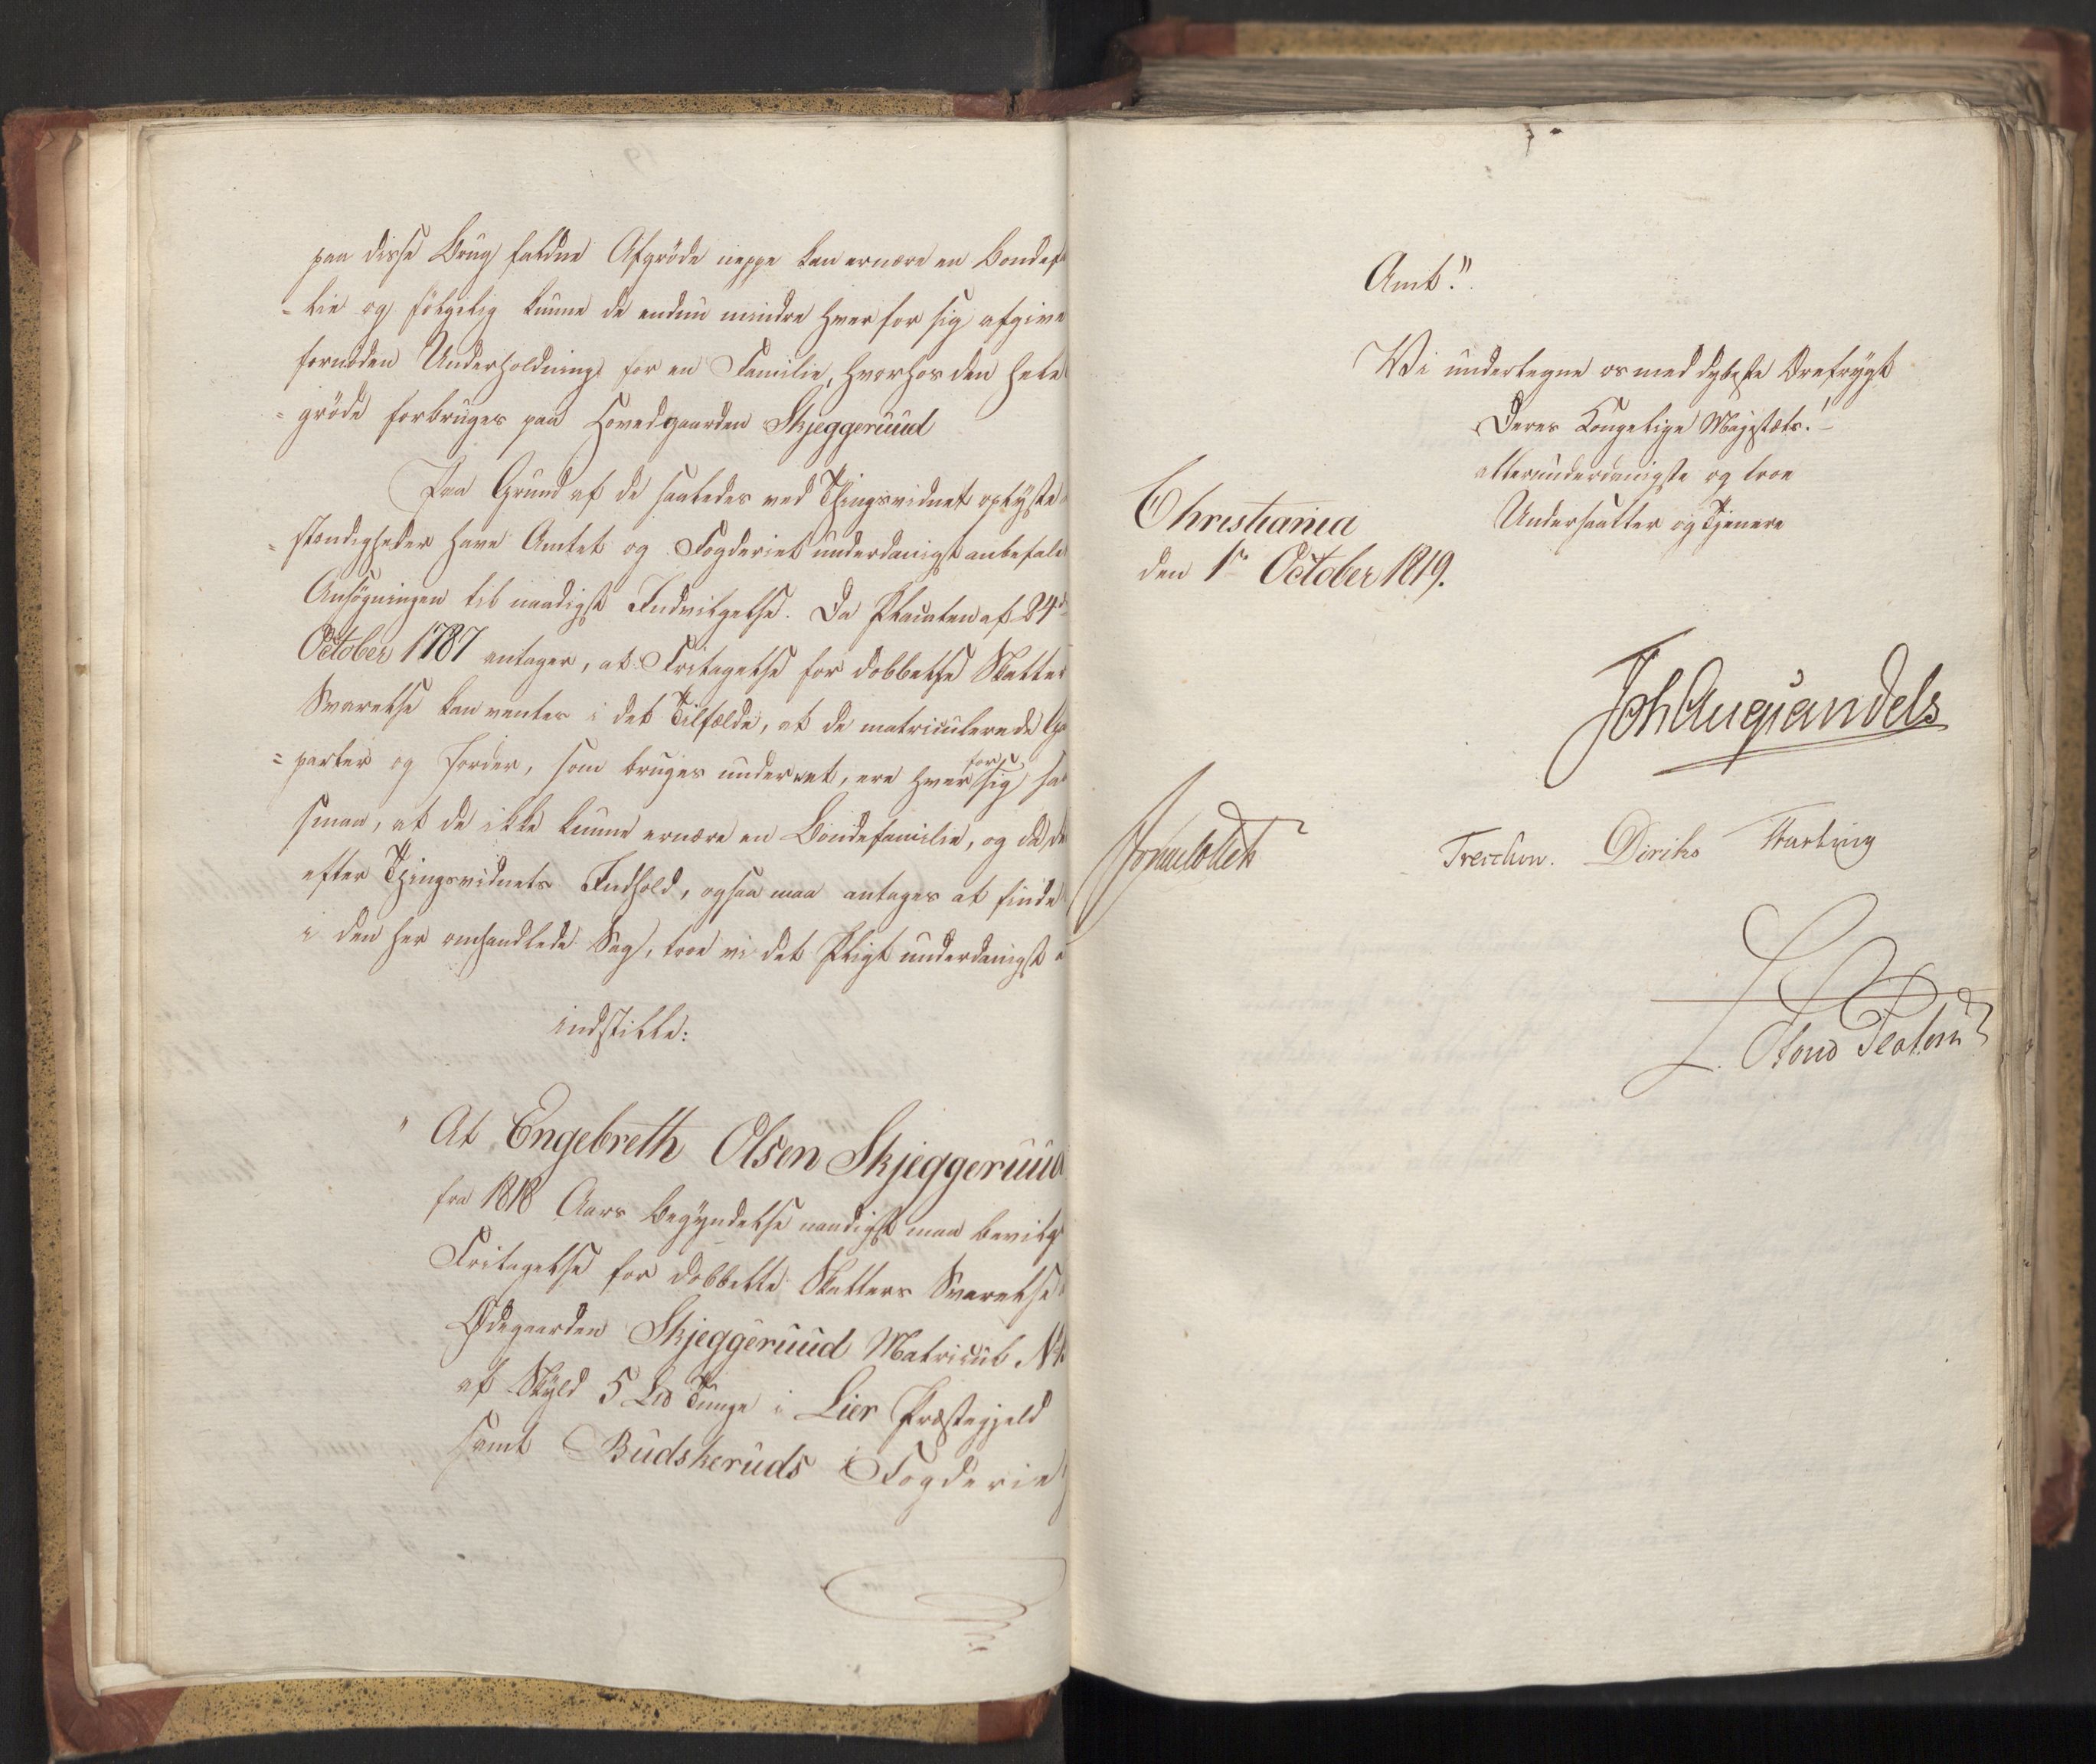 paa disse Brug faldne Afgröde neppe kan ernære en Bondef
-lie og fölgelig kunne de endnu mindre hver for sig afgive
fornöden Underholdning for en Familie, hvorhos den hele
=gröde forbruges paa Hovedgaarden Skjeggeruud
Paa Grund af de saaledes ved Thingsvidnet oplyste
=stændigheder have Amtet og Fogderiet underdanigst anbefale
Ansögningen til naadigst Indvilgelse. Da Placaten af 24de
October 1787 antager, at Fritagelse for dobbelte Skatter
Svarelse kan ventes i det Tilfælde, at de matriculerede
=parter og Jorder, som bruges under eet, ere hver for sig sa
smaa, at de ikke kunne ernære en Bondefamilie, og da de
efter Thingsvidnets Indhold, ogsaa maa antages at finde
i den her omhandlede Sag, troe vi det Pligt underdanigst a
indstille:
" At Engebreth Olsen Skjeggeruud
fra 1818 Aars Begyndelse naadigst maa bevilg
Fritagelse for dobbelte Skatters Svarelse
Ödegaarden Skjeggeruud Matricul No
af Skyld 5 Ld Tunge i Lier Præstegjeld
samt Budskeruds Fogderie
Amt."
Vi undertegne os med dybeste Ærefrygt
Deres Kongelige Majestæts!
allerunderdanigste og troe
Undersaatter og Tjenere
Christiania
den 1ste October 1819.
Joh Aug Sandels
Jonas Collett
Treschow. Diriks Fasting
L. Stoud Platou